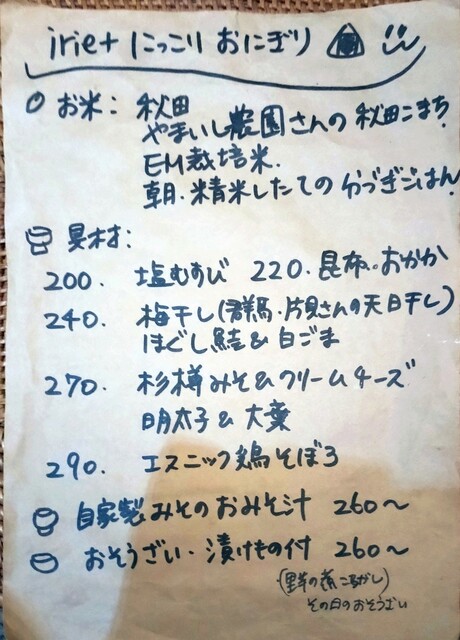 irie+ にっこり おにぎり
お米: 秋田
やまいし農園さんの 秋田こまち.
EM栽培米.
朝.精米したての 分づきごはん.
具材:
200. 塩むすび 220. 昆布。おかか
240. 梅干し(群馬・片貝さんの天日干し)
ほぐし鮭 & 白ごま
270. 杉樽みそ&クリームチーズ
明太子 & 大葉
290. エスニック鶏そぼろ
自家製みそのおみそ汁 260〜
おそうざい・漬けもの付 260〜
(野菜の煮ころがし)
その日のおそうざい